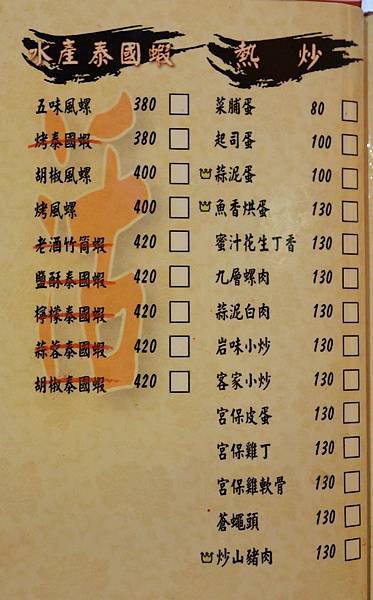 水產泰國蝦
五味風螺 380
烤泰國蝦 380
胡椒風螺 400
烤風螺 400
老酒竹筒蝦 420
鹽酥泰國蝦 420
檸檬泰國蝦 420
蒜蓉泰國蝦 420
胡椒泰國蝦 420
活
熱炒
菜脯蛋 80
起司蛋 100
蒜泥蛋 100
魚香烘蛋 130
蜜汁花生丁香 130
九層螺肉 130
蒜泥白肉 130
岩味小炒 130
客家小炒 130
宮保皮蛋 130
宮保雞丁 130
宮保雞軟骨 130
蒼蠅頭 130
炒山豬肉 130